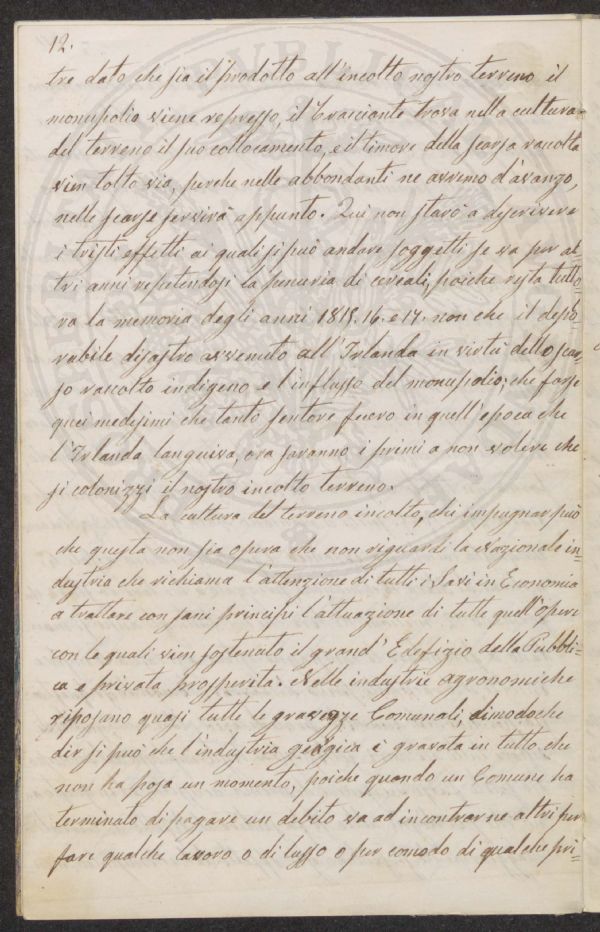 12.
tre dato che sia il prodotto all'incolto nostro terreno il
monupolio viene represso, il Brasciante trova nella cultura
del terreno il suo collocamento, e il timore della scarsa raccolta
vien tolto via, perche nelle abbondanti ne avremo d'avanzo,
nelle scarse servirà appunto. Qui non starò a discrivere
i tristi effetti ai quali si può andare soggetti se va per al=
tri anni repetendosi la penuria di cereali, poiche resta tutto=
ra la memoria degli anni 1815.16. e 17. non che il deplo=
rabile disastro avvenuto all'Irlanda in virtù dello scar=
so raccolto indigeno e l'influsso del monupolio; che forse
quei medesimi che tanto sentore fuoro in quell'epoca che
l'Irlanda languiva, ora saranno i primi a non volere che
si colonizzi il nostro incolto terreno.
La cultura del terreno incolto, chi impugnar può
che questa non sia opera che non riguardi la Nazionale in=
dustria che richiama l'attenzione di tutti i Savi in Economia
a trattare con sani principi l'attuazione di tutte quell'opere
con le quali vien sostenuto il grand' Edefizio della Pubbli=
ca e privata prosperità. Nelle industrie agronomiche
riposano quasi tutte le gravezze Comunali, dimodoche
dir si può che l'industria geõgica è gravata in tutto che
non ha posa un momento, poiche quando un Comune ha
terminato di pagare un debito va ad incontrarne altri per
fare qualche lavoro o di lusso o per comodo di qualche pri=